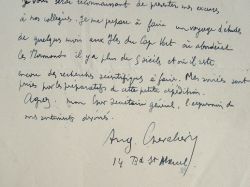 vous serai reconnaissant de présenter mes excuses
à nos collègues. Je me prépare à faire un voyage d'études
de quelques mois aux Iles du Cap Vert où abordèrent
les Normands il y a plus de 5 siècles et où il reste
encore des recherches scientifiques à faire. Mes soirées sont
prises par les préparatifs de cette petite expédition.
Agréez, mon cher Secrétaire général, l'expression de
mes sentiments dévoués.
Aug. Chevalier
14 Bd St Marcel